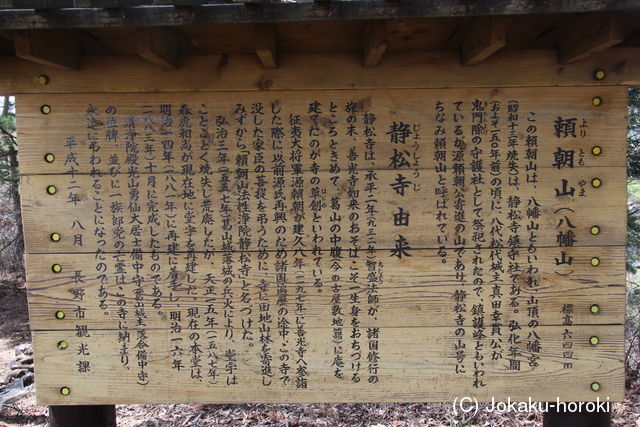 頼朝山(八幡山) 標高六四四m
よりともやま
この頼朝山は、八幡山ともいわれ、山頂の八幡宮
(昭和十三年焼失)は、静松寺鎮守社である。弘化年間
(およそ一五〇年前)の頃に、八代松代城主真田幸貫公が
鬼門除の守護社として祭祀されたので、鎮護峰ともいわれ
ているが源頼朝公寄進の山であり、静松寺の山号に
ちなみ頼朝山と呼ばれている。
じょうしょうじ
静松寺由来
静松寺は、承平二年(九三二年)智空法師が、諸国修行の
旅の末、善光寺如来のおそばこそ一生身をおちつける
ところときめて、葛山の中腹(今の古屋敷地籍)に庵を
建てたのが寺の草創といわれている。
はじめ
征夷大将軍源頼朝が建久八年(一一九七年)に善光寺へ参詣
した際に以前源氏再興のため諸国協歴の途中、この寺で
没した家臣の菩提を弔うために、寺に田地山林を寄進し
みずから「頼朝山法性浄院静松寺」と名づけた。
弘治三年(一五五七年)葛山城落城の兵火により、堂宇は
ことごとく焼失し荒廃したが、天正一五年(一五八七年)
春虎和尚が現在地に堂宇を再建した。現在の本堂は、
明治一四年(一八八一年)に再建に着手し、明治一六年
(一八八三年)十月に完成したものである。
清浄院殿光山勇仙大居士(備中守)(葛山城主落合備中守)
の位牌、並びに一族郎党の亡霊は、この寺に納まり、
永遠に弔われることになったのである。
平成十二年 八月 長野市観光課
(C) Jokaku-horoki